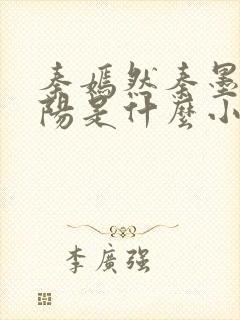 秦嫣然秦墨
陽是什麼小
李廣强